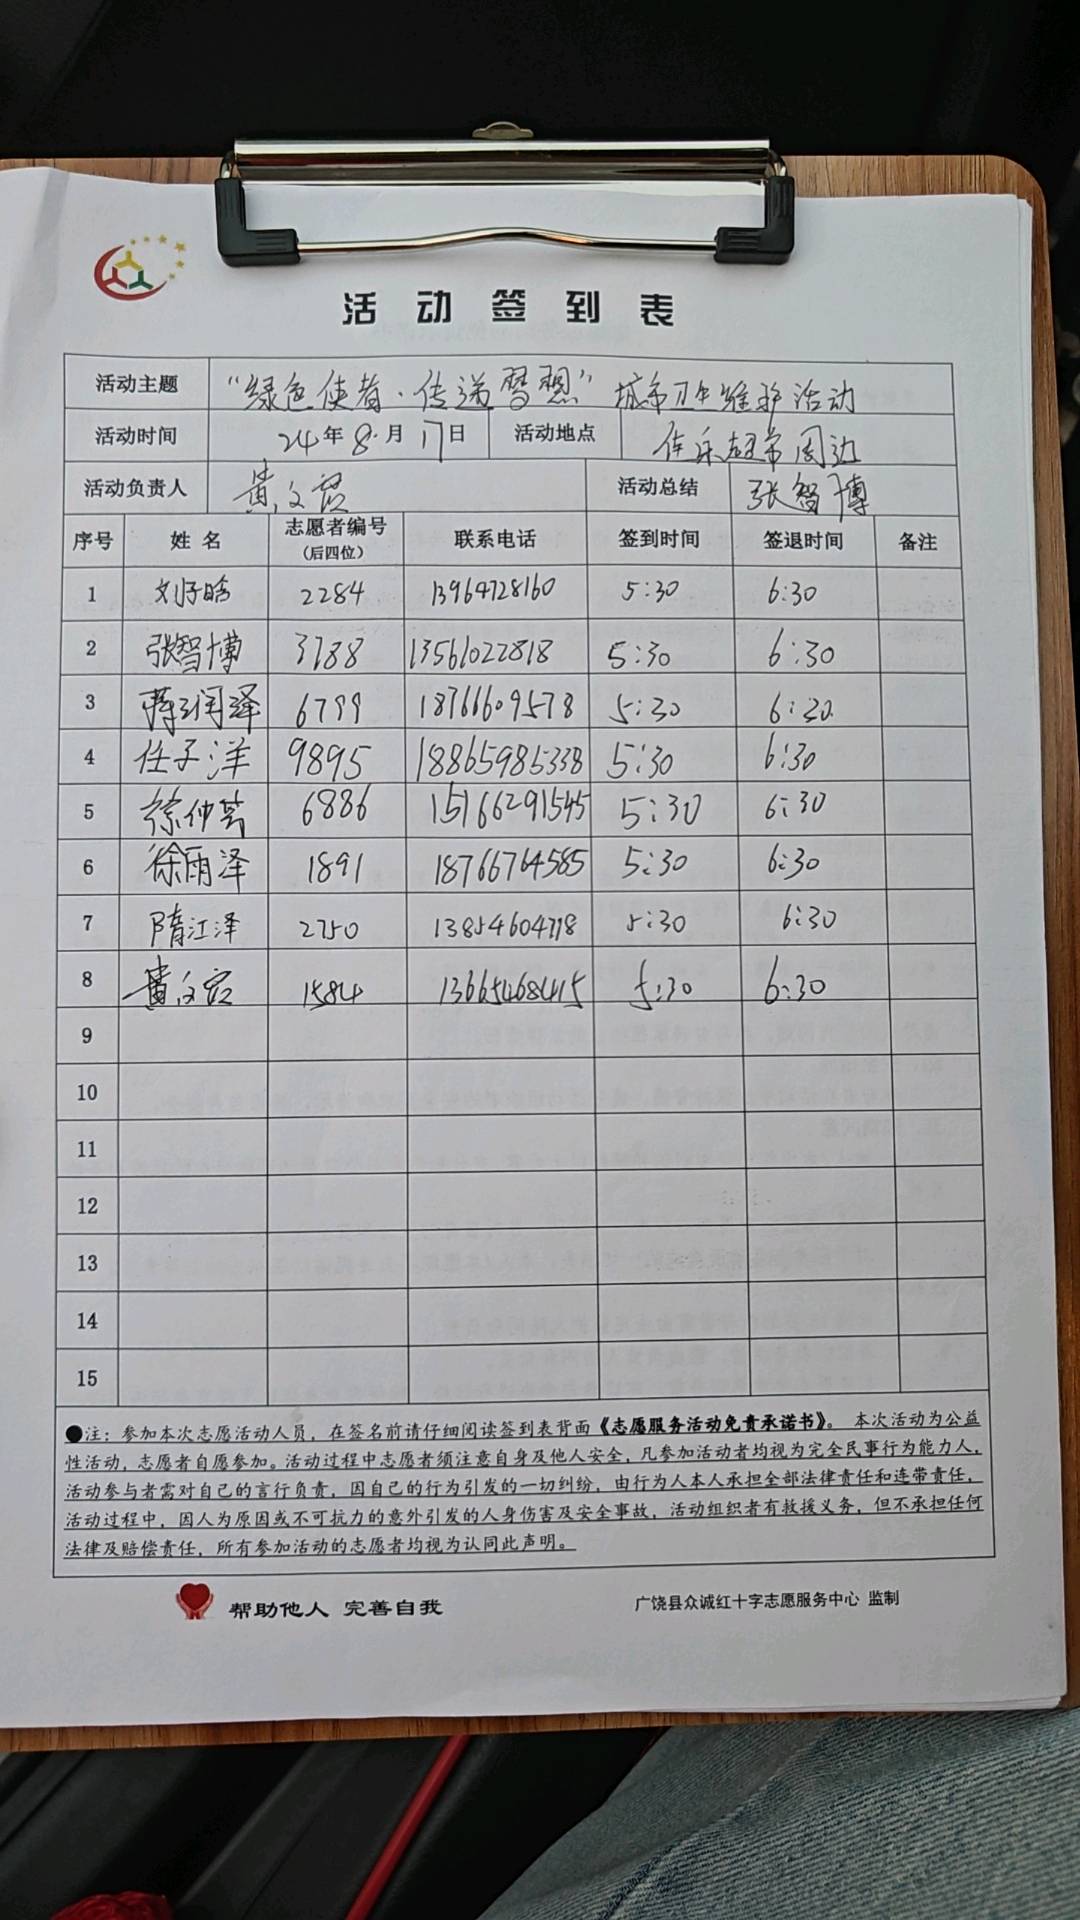 活动签到表
活动主题 “绿色使者·传递梦想”城市卫生维护活动
活动时间 24年8月17日 活动地点 佳乐超市周边
活动负责人 黄文 活动总结 张智博
序号 姓名 志愿者编号(后四位) 联系电话 签到时间 签退时间 备注
1 刘子晗 2284 13964728160 5:30 6:30
2 张智博 3788 13561022818 5:30 6:30
3 蒋润泽 6799 18766609578 5:30 6:30
4 任子洋 9895 18865985338 5:30 6:30
5 徐仲 6886 15166291545 5:30 6:30
6 徐雨泽 1891 18766764585 5:30 6:30
7 隋江泽 2750 13854604778 5:30 6:30
8 黄文 1584 13665468415 5:30 6:30
9
10
11
12
13
14
15
●注：参加本次志愿活动人员，在签名前请仔细阅读签到表背面《志愿服务活动免责承诺书》。本次活动为公益
性活动，志愿者自愿参加。活动过程中志愿者须注意自身及他人安全，凡参加活动者均视为完全民事行为能力人，
活动参与者需对自己的言行负责，因自己的行为引发的一切纠纷，由行为人本人承担全部法律责任和连带责任，
活动过程中，因人为原因或不可抗力的意外引发的人身伤害及安全事故，活动组织者有救援义务，但不承担任何
法律及赔偿责任，所有参加活动的志愿者均视为认同此声明。
帮助他人 完善自我 广饶县众诚红十字志愿服务中心 监制